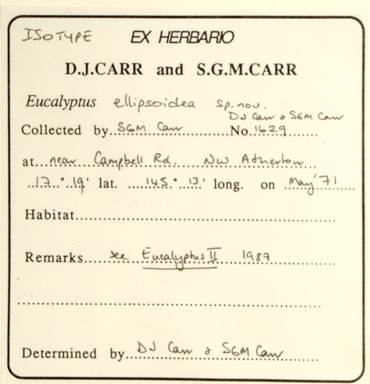 ISOTYPE EX HERBARIO
D.J.CARR and S.G.M.CARR
Eucalyptus ellipsoidea sp. nov.
DJ Carr & SGM Carr
Collected by SGM Carr No. 1629
at near Campbell Rd. NW Atherton
17° 19' lat. 145° 13' long. on May '71
Habitat
Remarks see Eucalyptus II 1987
Determined by DJ Carr & SGM Carr